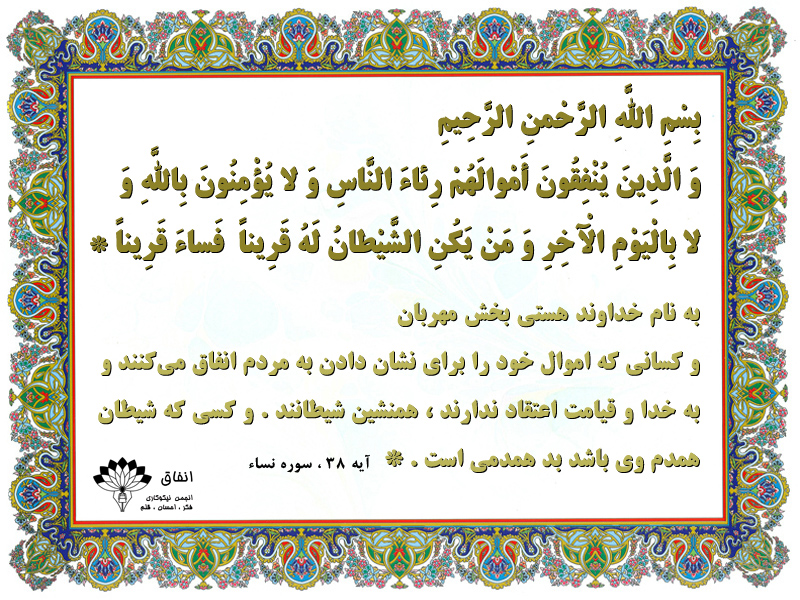 بِسْمِ اللَّهِ الرَّحْمنِ الرَّحِيمِ
وَ الَّذِينَ يُنْفِقُونَ أَمْوالَهُمْ رِئاءَ النَّاسِ وَ لا يُؤْمِنُونَ بِاللَّهِ وَ
لا بِالْيَوْمِ الْآخِرِ وَ مَنْ يَكُنِ الشَّيْطانُ لَهُ قَرِيناً فَساءَ قَرِيناً *
به نام خداوند هستی بخش مهربان
و کسانی که اموال خود را برای نشان دادن به مردم انفاق می‌کنند و
به خدا و قیامت اعتقاد ندارند ، همنشین شیطانند . و کسی که شیطان
همدم وی باشد بد همدمی است . * آیه ۳۸ ، سوره نساء
انفاق
انجمن نیکوکاری
فکر ، احسان ، قلم